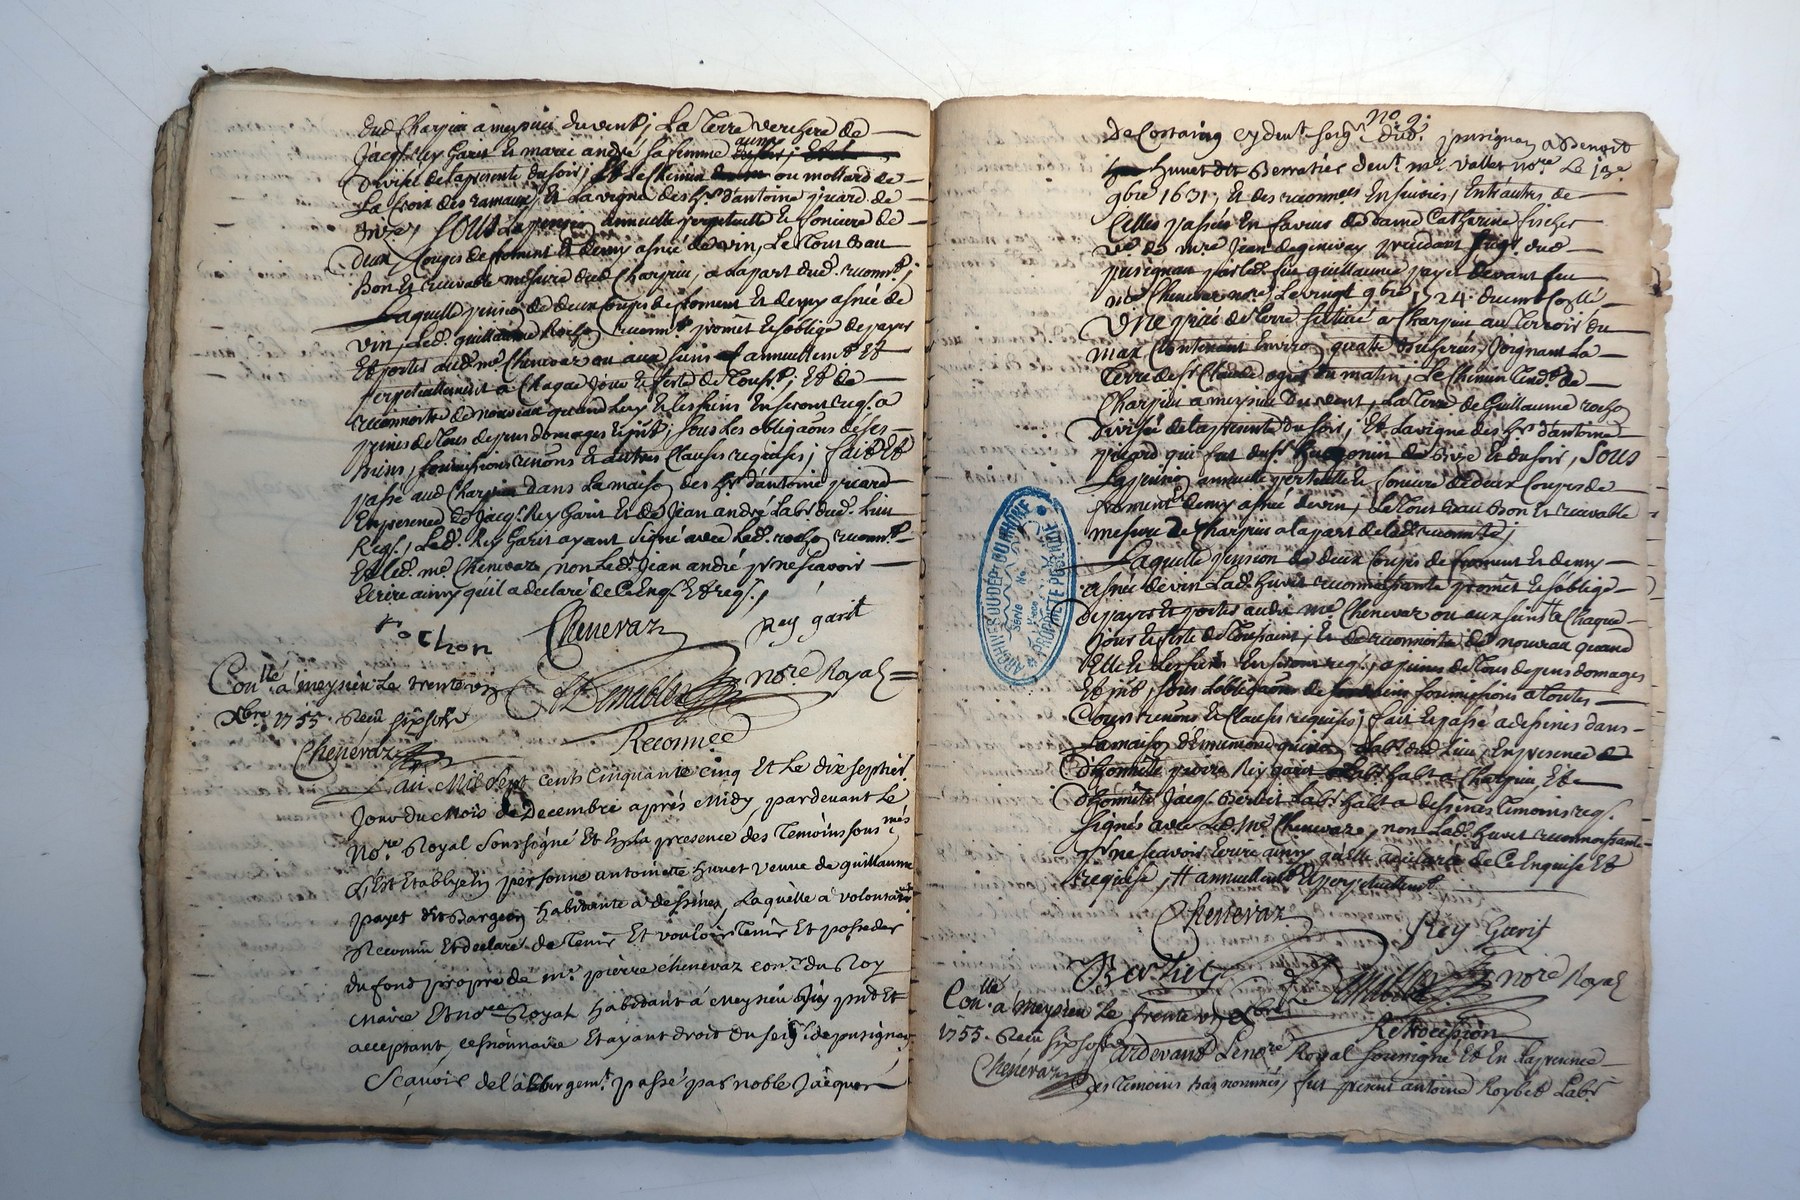 dud Charpieu a meysieu du vent, La Terre verchere de
Jacqs. Rey Garit et marie andré sa femme aussy
Divisé de la presente du soir, Et Le chemin ou mollard de
La Croix des rameaux, Et La vigne des hrs d'antoine picard de
SOUS La pension annuelle perpetuelle et fonciere de
deux Coupes de froment Et demy asnée de vin, Le Tout Beau
Bon et recevable mesure dud. Charpieu, a la part dud. reconnt.
Laquelle pension de deux coupes de froment Et demy asnée de
vin, Led. guillaume Rochon reconnt. promet et s'oblige de payer
Et porter aud. me. Chenevaz ou aux siens annuellemt. Et
perpetuellement a Chaque jour et feste de Touss., Et de
reconnoitre de nouveau quand Luy Et les siens En seront req. a
peines de Tous depens domages Et jnt., sous Les obligaons de ses
Biens, soumissions renons Et autres Clauses requises, fait Et
passé aud. Charpieu dans La maison des hrs. d'antoine picard
En presence de Jacqs. Rey Garit Et de Jean andré Labr. dud. Lieu
Req., Led. Rey Garit ayant signé avec Led. rochon reconnt.
Et led. me. Chenevaz, non Led. Jean andré pr. ne scavoir
Ecrire ainsy qu'il a declaré de Ce Enq. Et req.,
rochon Chenevaz Rey garit
nore Royal
Conllé. a meysieu Le trente un
Xbre 1755. Receu six sols
Chenevaz
Reconnce
L'an Mil Sept cents Cinquante cinq Et Le dix septiè.
Jour du Mois de Decembre après Midy, pardevant Le
Nore. Royal Soussigné Et En La presence des Temoins sous nmés
S'Est Etablye En personne antoinette huvet veuve de guillaume
payet dit Bargeon habitante à dessines, Laquelle à volontairemt
Reconnu Et declaré de Tenir Et vouloir Tenir Et posseder
du fond propre de mr. pierre chenevaz conr. du Roy
Maire Et nore Royal habitant à Meysieu Icy pnt Et
acceptant, cessionnaire Et ayant droit du seigr. de pusignan
Scavoir de l'albergemt. passé par noble Jacques
No. 9.
De Costaing cy devt. seigr. dud. pusignan a Benoit
huvet dit Berratier devt. me. Vallet nore. Le 13e
9bre 1631, Et des reconnces Ensuivies, Entr'autres de
Celles passées En faveur de dame Catherine fischer
ve. de mre Jean de ginevay president seigr. dud.
pusignan par led. feu guillaume payet devant feu
me. Chenevaz nore. Le vingt 9bre 1724.
Une piece de Terre située a Charpieu au Terroir du
mas Contenant Environ quatre Bicherées, Joignant La
Terre de sr. Claude du matin, Le Chemin Tendt. de
Charpieu a meysieu du vent, La Terre de Guillaume rochon
Divisée de La presente du soir, Et La vigne des hrs d'antoine
picard qui fut du sr. de Bize Et du soir, Sous
La pension annuelle perpetuelle Et fonciere de deux Coupes de
froment demy asnée de vin, Le Tout Beau Bon Et recevable
mesure de Charpieu a la part de lad. reconnte.
Laquelle pension de deux Coupes de froment Et demy
asnée de vin Lad. huvet reconnoissante promet Et s'oblige
de payer Et porter aud. me. Chenevaz ou aux siens # Chaque
jour Et feste de Toussaint, Et de reconnoitre de nouveau quand
Elle Et Les siens En seront req., a peines de Tous depens domages
Et jnt., sous L'obligaon de ses biens soumissions a toutes
Cours renons Et Clauses requises, fait Et passé a dessines dans
La maison d'Ennemond Labr. dud. Lieu, En presence
d'honnete pierre Rey garit Labr. habt. a Charpieu, Et de
d'honnete Jacqs. Berliet Labr. habt. a dessines Temoins req.
signés avec Led. Me. Chenevaz, non Lad. huvet reconnoissante
pr. ne scavoir Ecrire ainsy qu'elle a declaré de Ce Enquise Et
requise, # annuellemt. Et perpetuellemt.
Chenevaz Rey Garit
Berliet nore Royal
Conllé. a Meysieu Le trente un Xbre
1755. Receu six sols
Chenevaz
Retrocession
Pardevant Le nore. Royal soussigné Et En La presence
des Temoins bas nommés, fut present antoine Roybet Labr.
ARCHIVES DU DEPT DU RHONE
PROPRIETE PUBLIQUE